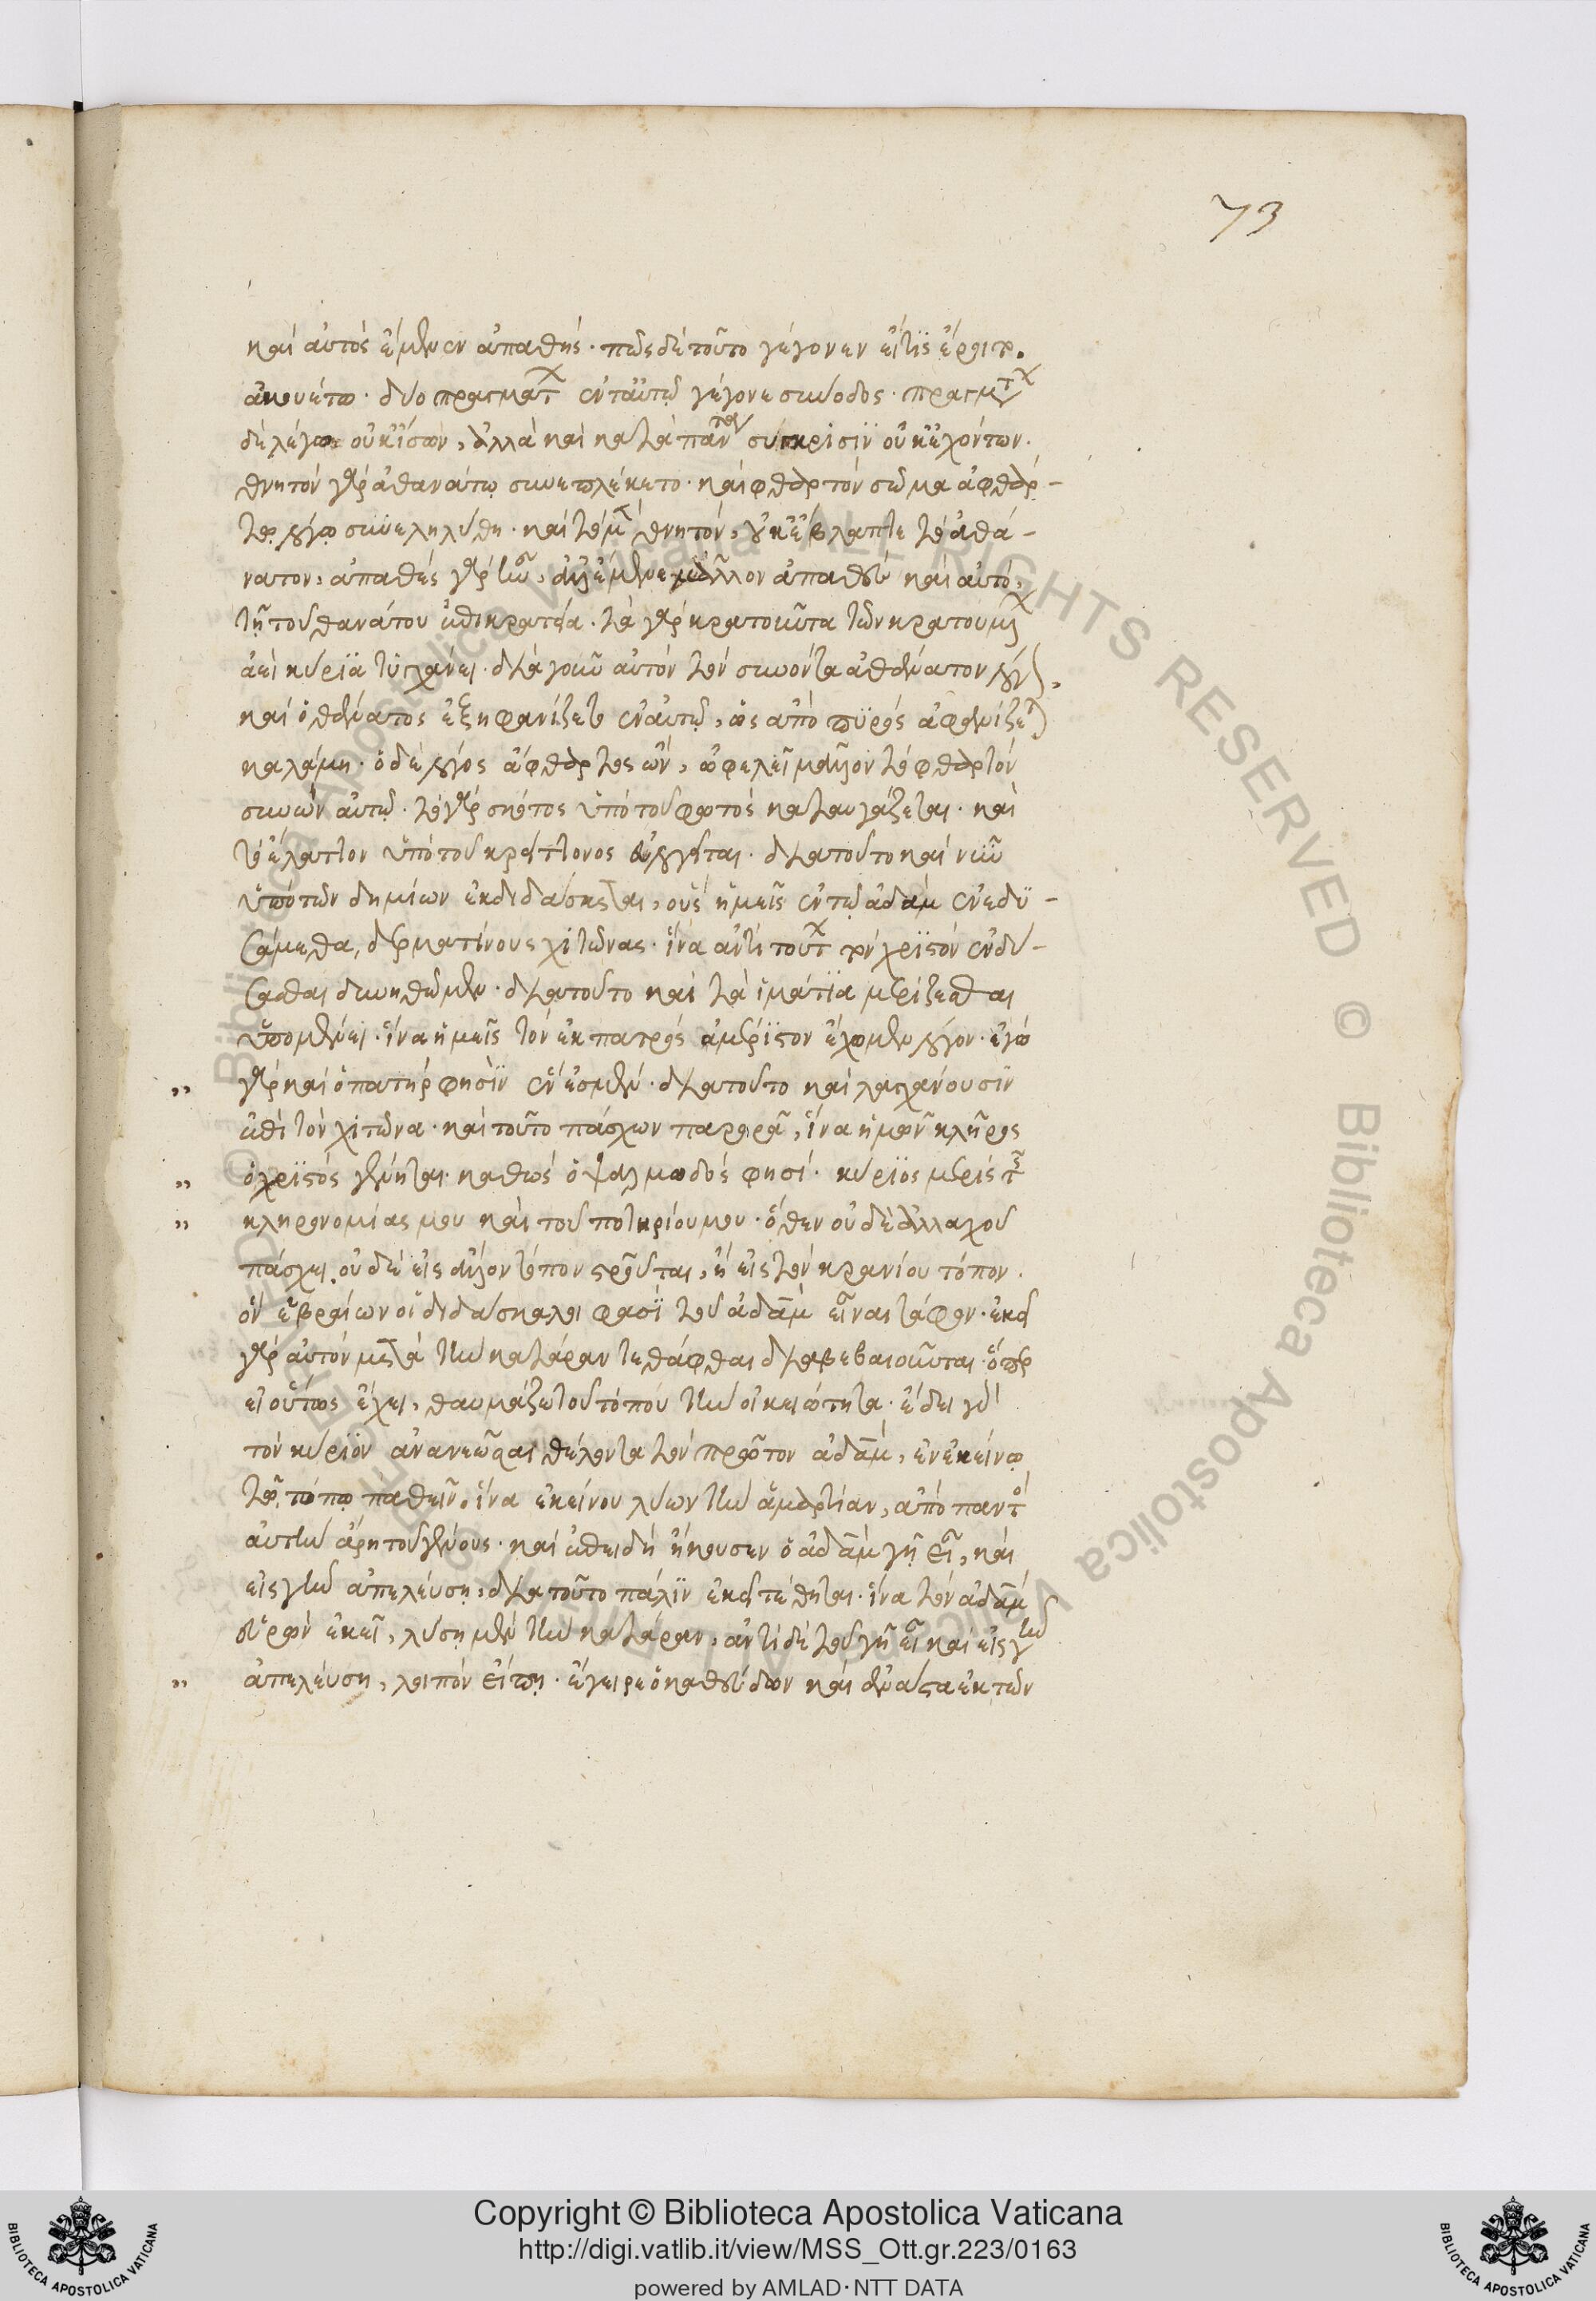 73
καὶ αὐτὸς ἔμενεν ἀπαθής· πῶς δὲ τοῦτο γέγονεν εἴ τις ἔροιτο.
ἀκουέτω· δύο πραγμάτων ἐνταυτῷ γέγονε σύνοδος· πραγμάτων
δὲ λέγω οὐκ ἴσων, ἀλλὰ καὶ κατὰ πάντα σύγκρισιν οὐκ ἐχόντων.
θνητὸν γὰρ ἀθανάτῳ συνεπλέκετο· καὶ φθαρτὸν σῶμα ἀφθάρ-
τῳ λόγῳ συνεληλύθη· καὶ τὸ μὲν θνητόν, οὐκ ἔβλαπτε τὸ ἀθά-
νατον, ἀπαθὲς γὰρ ἦν, ἀλλ' ἔμενε μᾶλλον ἀπαθὲς καὶ αὐτό,
τῇ τοῦ θανάτου ἐπικρατείᾳ· τὰ γὰρ κρατοῦντα τῶν κρατουμένων
ἀεὶ κύρια τυγχάνει· διὰ γοῦν αὐτὸν τὸν συνόντα ἀθάνατον λόγον,
καὶ ὁ θάνατος ἐξηφανίζετο ἐν αὐτῷ, ὡς ἀπὸ πυρὸς ἀφανίζεται
καλάμη· ὁ δὲ λόγος ἄφθαρτος ὤν, ὠφελεῖ μᾶλλον τὸ φθαρτόν
συνὼν αὐτῷ· τὸ γὰρ σκότος ὑπὸ τοῦ φωτὸς καταυγάζεται· καὶ
τὸ ἔλαττον ὑπὸ τοῦ κρείττονος εὐλογεῖται· διὰ τοῦτο καὶ νῦν
ὑπὸ τῶν δημίων ἐκδιδάσκεται, οὓς ἡμεῖς ἐν τῷ ἀδὰμ ἐνεδυ-
σάμεθα, δερματίνους χιτῶνας· ἵνα ἀντὶ τούτων τὸν χριστὸν ἐνδύ-
σασθαι δυνηθῶμεν· διὰ τοῦτο καὶ τὰ ἱμάτια μερίζεσθαι
ὑπομένει· ἵνα ἡμεῖς τὸν ἐκ πατρὸς ἀμέριστον ἔχωμεν λόγον· ἐγὼ
" γὰρ καὶ ὁ πατήρ φησὶν ἕν ἐσμέν· διὰ τοῦτο καὶ λαγχάνουσιν
ἐπὶ τὸν χιτῶνα· καὶ τοῦτο πάσχων παρορᾷ, ἵνα ἡμῶν κλῆρος
" ὁ χριστὸς γένηται· καθὼς ὁ ψαλμωδός φησί· κύριος μερὶς τῆς
" κληρονομίας μου καὶ τοῦ ποτηρίου μου· ὅθεν οὐδὲ ἀλλαχοῦ
πάσχει, οὐδὲ εἰς ἄλλον τόπον σταυροῦται, ἢ εἰς τὸν κρανίου τόπον.
ὃν ἑβραίων οἱ διδάσκαλοι φασὶ τοῦ ἀδὰμ εἶναι τάφον· ἐκεῖ
γὰρ αὐτὸν μετὰ τὴν κατάραν τεθάφθαι διαβεβαιοῦνται· ὅπερ
εἰ οὕτως ἔχει, θαυμάζω τοῦ τόπου τὴν οἰκειότητα· ἔδει γὰρ
τὸν κύριον ἀνανεῶσαι θέλοντα τὸν πρῶτον ἀδάμ, ἐν ἐκείνῳ
τῷ τόπῳ παθεῖν, ἵνα ἐκείνου λύων τὴν ἁμαρτίαν, ἀπὸ παντὸς
αὐτὴν ἄρῃ τοῦ γένους· καὶ ἐπειδὴ ἤκουσεν ὁ ἀδὰμ γῆ εἶ, καὶ
εἰς γῆν ἀπελεύσῃ, διὰ τοῦτο πάλιν ἐκεῖ τέθηται· ἵνα τὸν ἀδὰμ
εὑρὼν ἐκεῖ, λύσῃ μὲν τὴν κατάραν, ἀντὶ δὲ τοῦ γῆ εἶ καὶ εἰς γῆν
" ἀπελεύση, λοιπὸν εἴπῃ· ἔγειρε ὁ καθεύδων καὶ ἀνάστα ἐκ τῶν
Copyright © Biblioteca Apostolica Vaticana
http://digi.vatlib.it/view/MSS_Ott.gr.223/0163
powered by AMLAD·NTT DATA
BIBLIOTECA APOSTOLICA VATICANA
BIBLIOTECA APOSTOLICA VATICANA